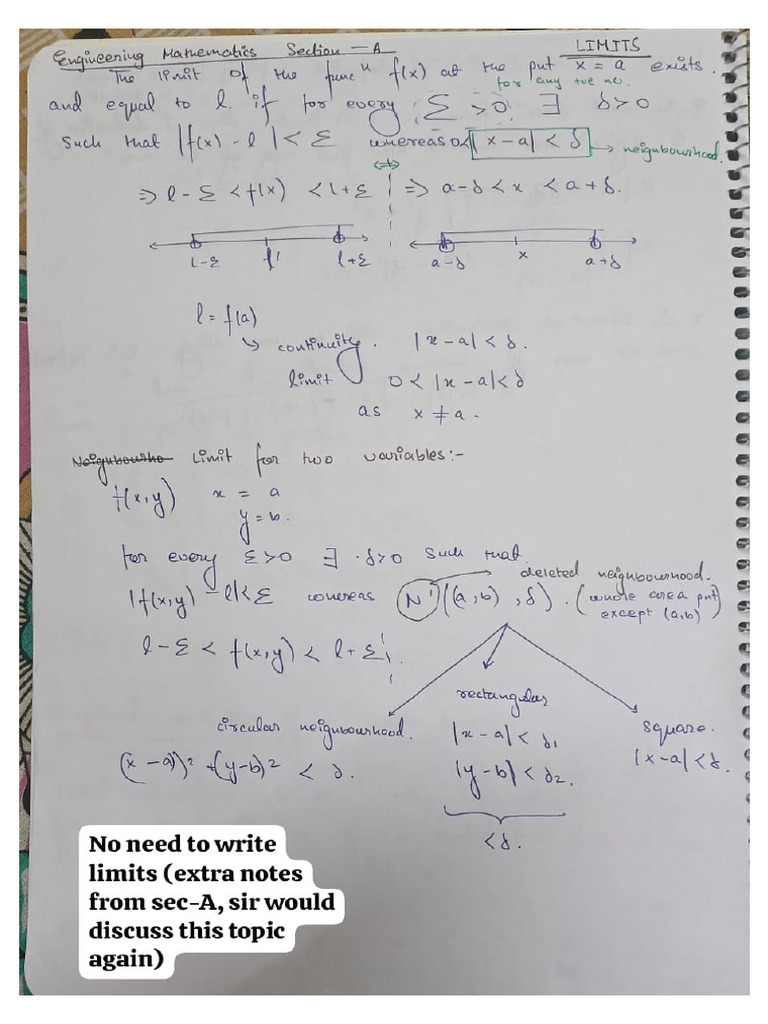 Engineering Mathematics Section - A
LIMITS
The limit of the funcⁿ f(x) at the put x = a exists.
for any +ve no.
and equal to l. if for every Σ > 0 ∃ δ > 0
Such that |f(x) - l| < Σ whereas 0< |x - a| < δ → neighbourhood.
⇒ l - Σ < f(x) < l + Σ ⇒ a - δ < x < a + δ.
l - Σ l l + Σ a - δ x a + δ
l = f(a)
↳ continuity. |x - a| < δ.
limit 0 < |x - a| < δ
as x ≠ a.
Neighbourho Limit for two variables:-
f(x,y) x = a
y = b.
for every Σ > 0 ∃ δ > 0 Such that
deleted neighbourhood.
|f(x,y) - l| < Σ whereas N'((a,b), δ). (whole area put
except (a,b))
l - Σ < f(x,y) < l + Σ
rectangular
circular neighbourhood. |x - a| < δ₁ square.
(x - a))² + (y - b)² < δ. |y - b| < δ₂. |x - a| < δ.
< δ.
No need to write
limits (extra notes
from sec-A, sir would
discuss this topic
again)